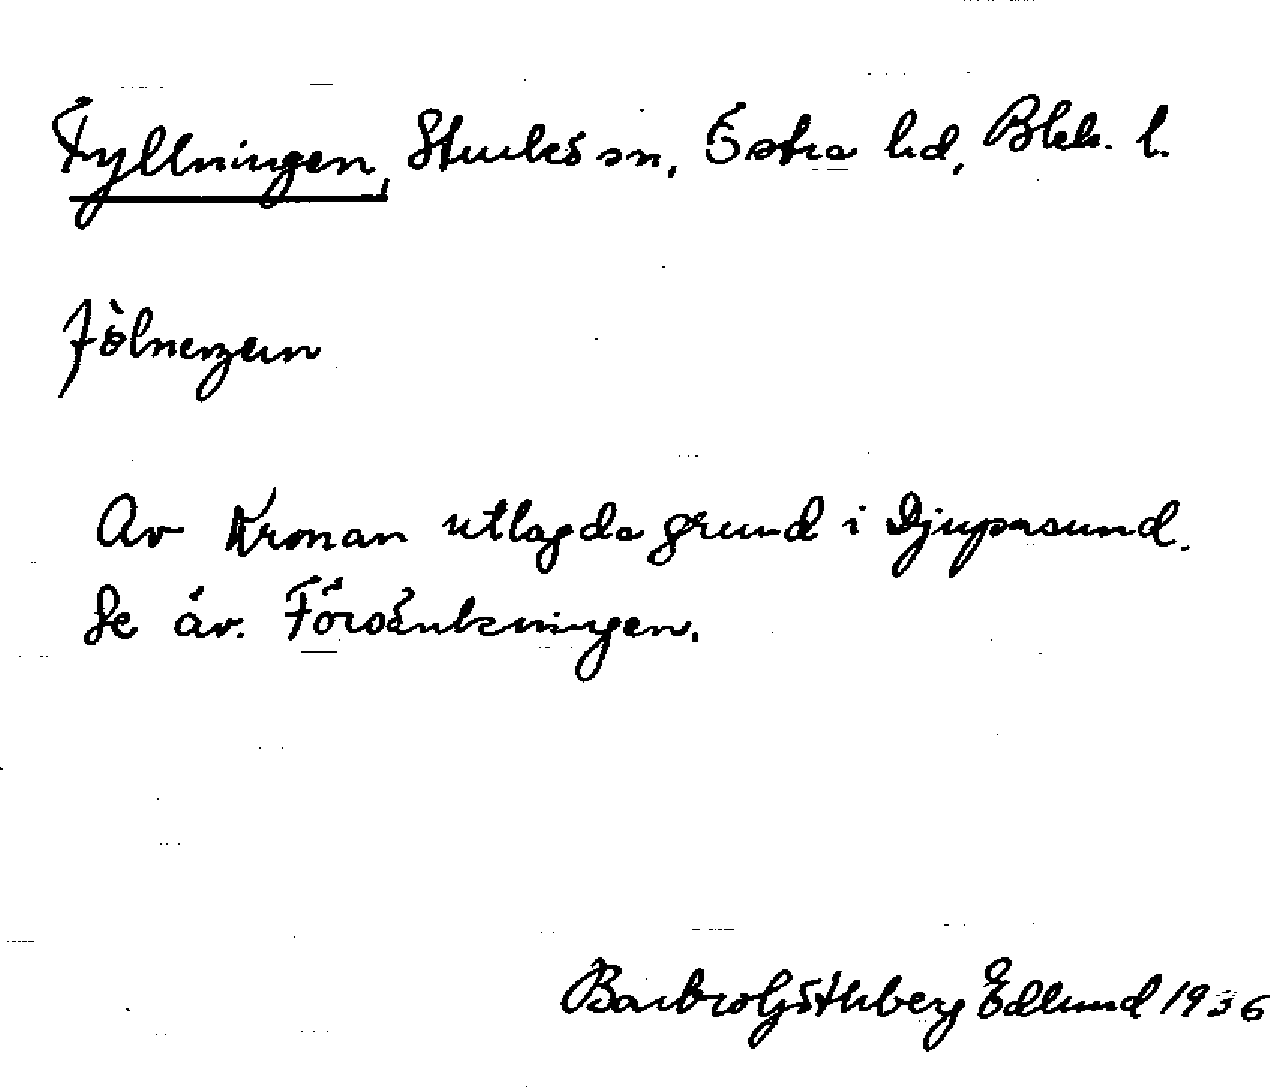 Fyllningen, Sturkö sn, Östra hd, Blek. l.
Av Kronan utlagda grund i Djupasund.
Se äv. Försänkningen.
Barbro Göthberg Edlund 1936